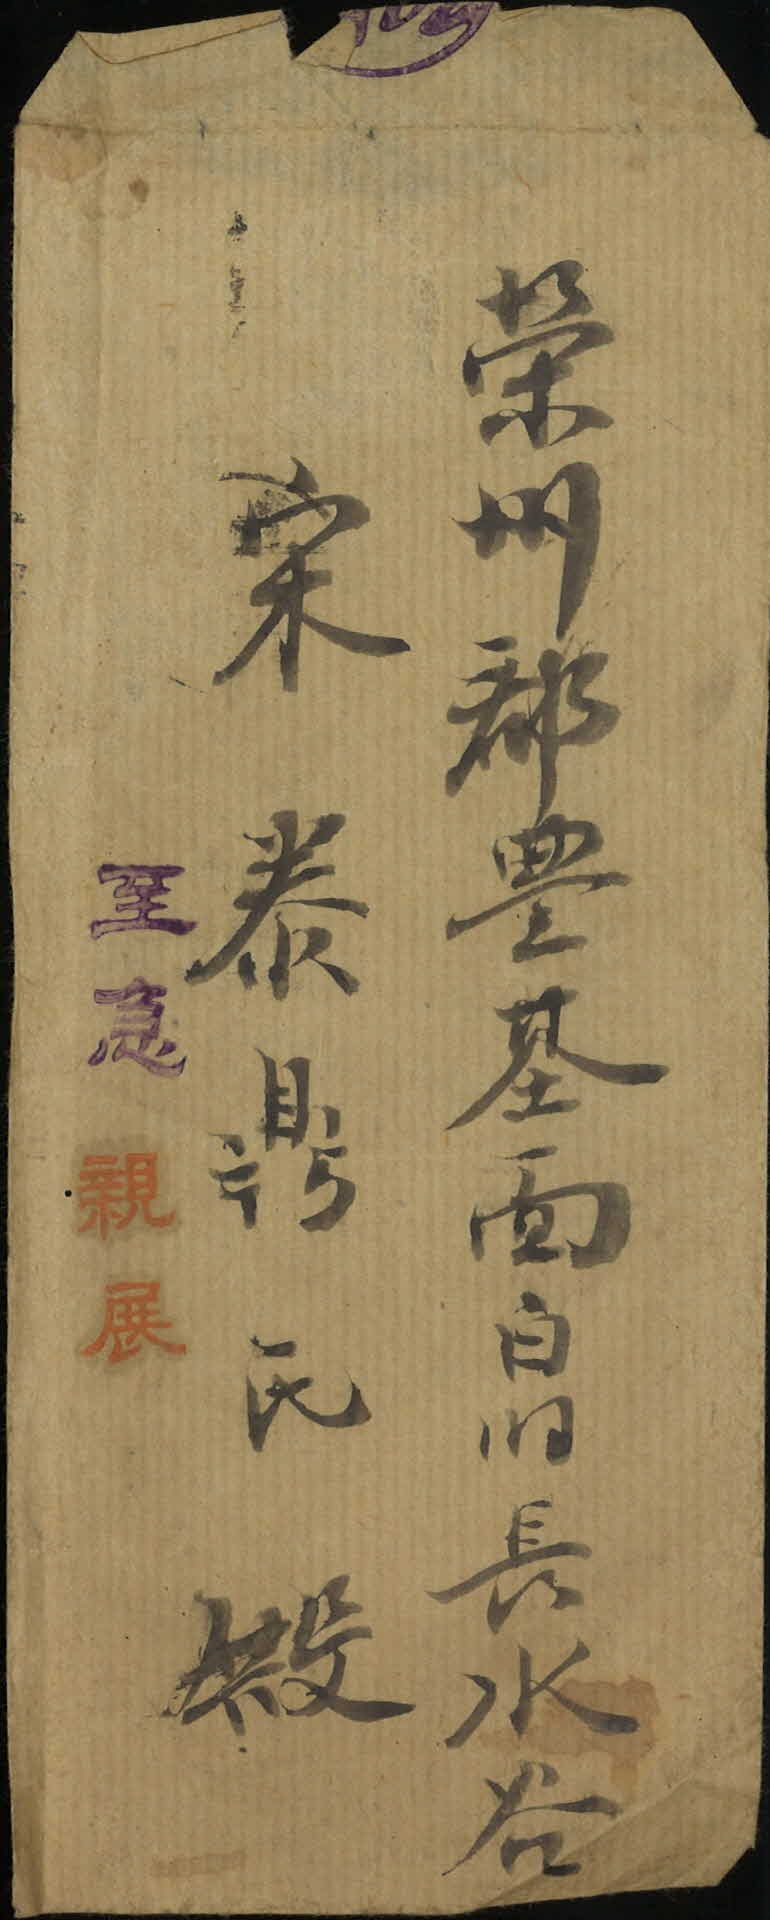 榮州郡豊基面白洞長水谷
宋泰鼎氏殿
至急
親展